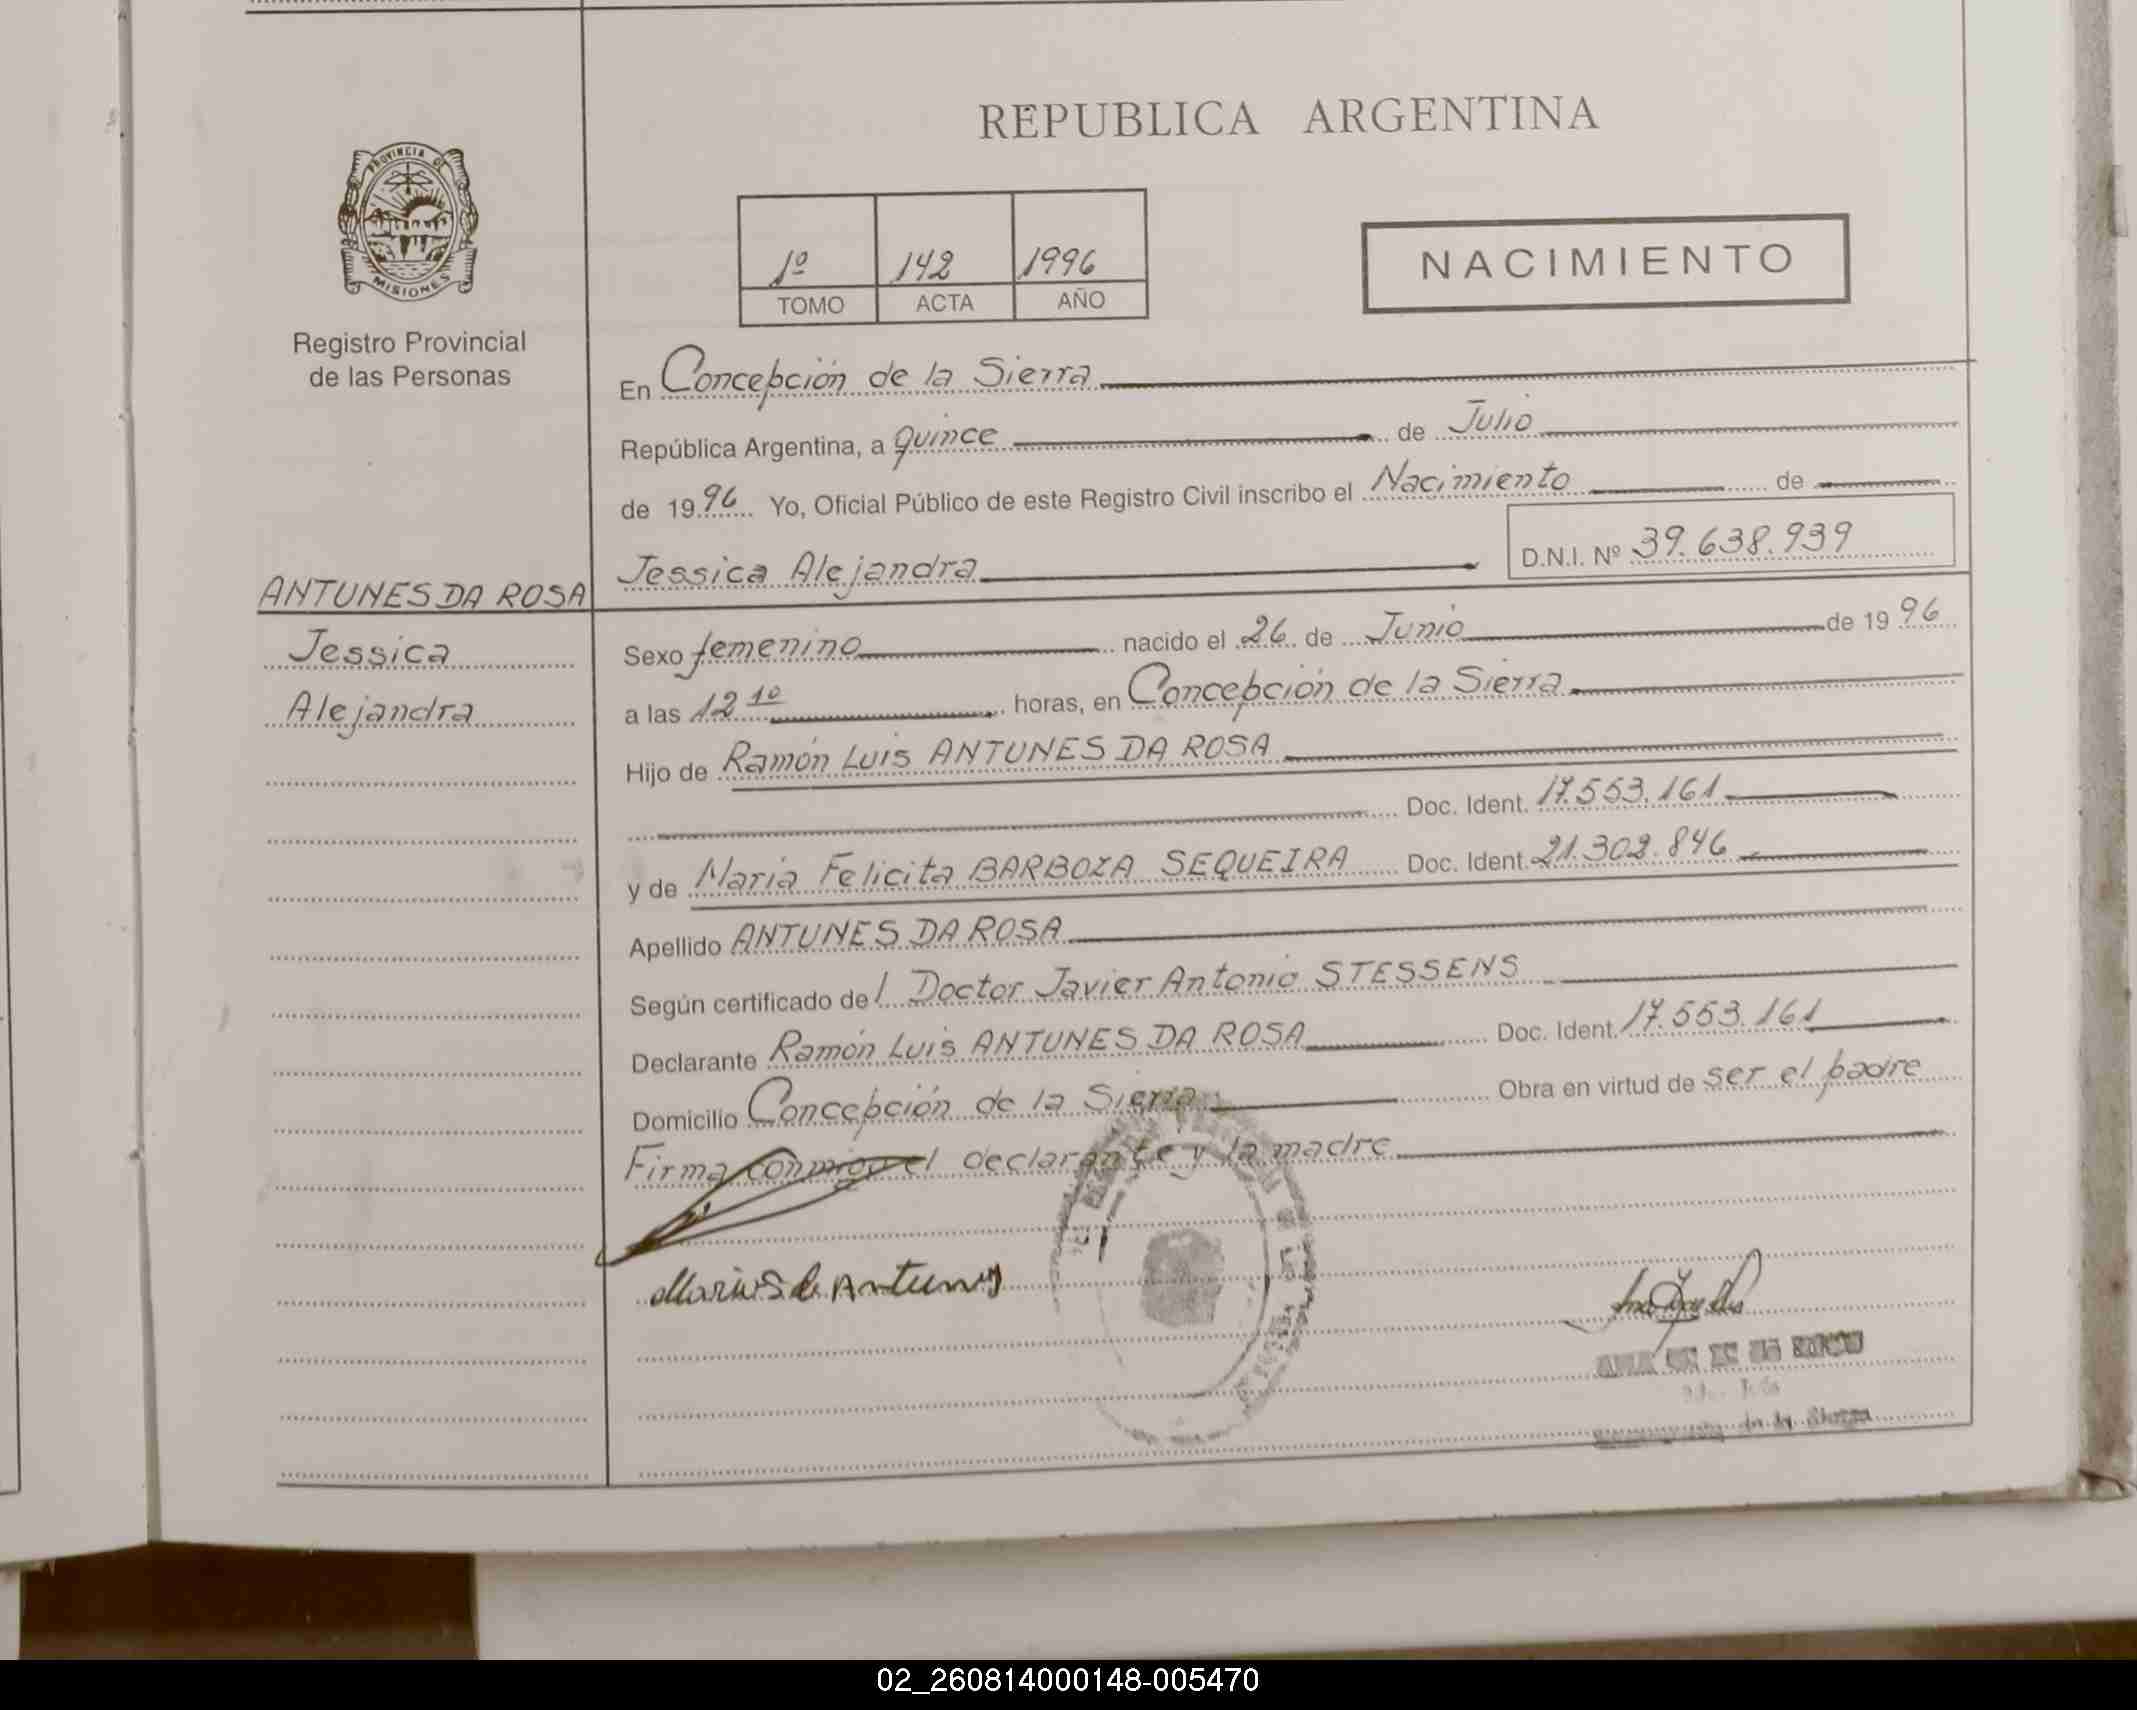 REPUBLICA ARGENTINA
PROVINCIA DE
MISIONES
Registro Provincial
de las Personas
1º 142 1996
TOMO ACTA AÑO
NACIMIENTO
En Concepción de la Sierra
República Argentina, a quince de Julio
de 1996 Yo, Oficial Público de este Registro Civil inscribo el Nacimiento de
Jessica Alejandra D.N.I. Nº 39.638.939
ANTUNES DA ROSA
Jessica
Alejandra
Sexo femenino nacido el 26 de Junio de 1996
a las 12 10 horas, en Concepción de la Sierra
Hijo de Ramón Luis ANTUNES DA ROSA
Doc. Ident. 17.553.161
y de Maria Felicita BARBOZA SEQUEIRA Doc. Ident. 21.302.846
Apellido ANTUNES DA ROSA
Según certificado del Doctor Javier Antonio STESSENS
Declarante Ramón Luis ANTUNES DA ROSA Doc. Ident. 17.553.161
Domicilio Concepción de la Sierra Obra en virtud de ser el padre
Firma conmigo el declarante y la madre
de Antunes
de la Sierra
02_260814000148-005470